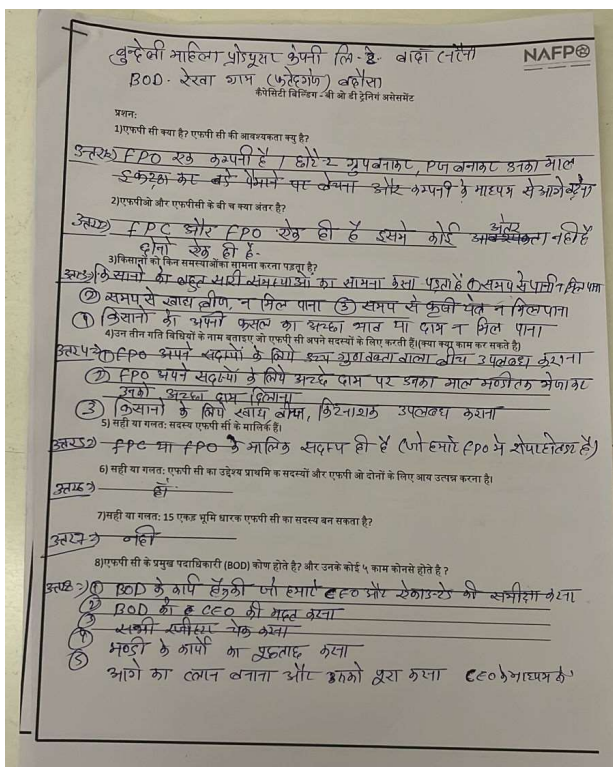 बुन्देली महिला प्रोड्यूसर कंपनी लि-2- बांदा (नरैनी)
NAFPO
BOD- रेखा ग्राम (फतेहगंज) बदौसा
कैपेसिटी बिल्डिंग - बी ओ डी ट्रेनिंग असेसमेंट
प्रशन:
1)एफपी सी क्या है? एफपी सी की आवश्यकता क्यु है?
उत्तर1) FPO एक कम्पनी है / छोटे-2 ग्रुप बनाकर, PG बनाकर उनका माल
इकट्ठा कर बडे पैमाने पर बेचना और कम्पनी के माध्यम से आगे बढ़ना
2)एफपीओ और एफपीसी के बी च क्या अंतर है?
उत्तर2) FPC और FPO ऐक ही है इसमे कोई अंतर नही है
दोनो ऐक ही है-
3)किसानों को किन समस्याओंका सामना करना पड़तूा है?
उत्तर3) किसानों को बहुत सारी समस्याओं का सामना करना पड़ता है ① समय से पानी न मिल पाना
② समय से खाद्य बीज, न मिल पाना ③ समय से कृषी यंत्र न मिल पाना
④ किसानो को अपनी फसल का अच्छा भाव या दाम न मिल पाना
4)उन तीन गति विधियों के नाम बताइए जो एफपी सी अपने सदस्यों के लिए करती हैं।(क्या क्यूा काम कर सकते है)
उत्तर4) ① FPO अपने सदस्यो के लिये उच्च गुणवक्ता वाला बीच उपलब्ध कराना
② FPO अपने सदस्यो के लिये अच्छे दाम पर उनका माल मण्डीतक भेजकर
उनको अच्छा दाम दिलाना
③ किसानों के लिये खाद्य बीज, किटनाशक उपलब्ध कराना
5) सही या गलत: सदस्य एफपी सी के मालिक हैं।
उत्तर5) FPC या FPO के मालिक सदस्य ही है (जो हमारे FPO मे शेयर होल्डर है)
6) सही या गलत: एफपी सी का उद्देश्य प्राथमि क सदस्यों और एफपी ओ दोनों के लिए आय उत्पन्न करना है।
उत्तर6) हाँ
7)सही या गलत: 15 एकड़ भूमि धारक एफपी सी का सदस्य बन सकता है?
उत्तर7) नही
8)एफपी सी के प्रमुख पदाधिकारी (BOD) कोण होते है? और उनके कोई ५ काम कोनसे होते है ?
उत्तर8) ① BOD के कार्य हैंकी जो हमारे CEO और ऐकाउन्टेड की समीक्षा करना
② BOD को CEO की मद्दत करना
③
④ सभी रजीस्टर चेक करना
⑤ मण्डी के कार्यो का पूछताछ करना
आगे का प्लान बनाना और उनको पूरा करना CEO के माध्यम से